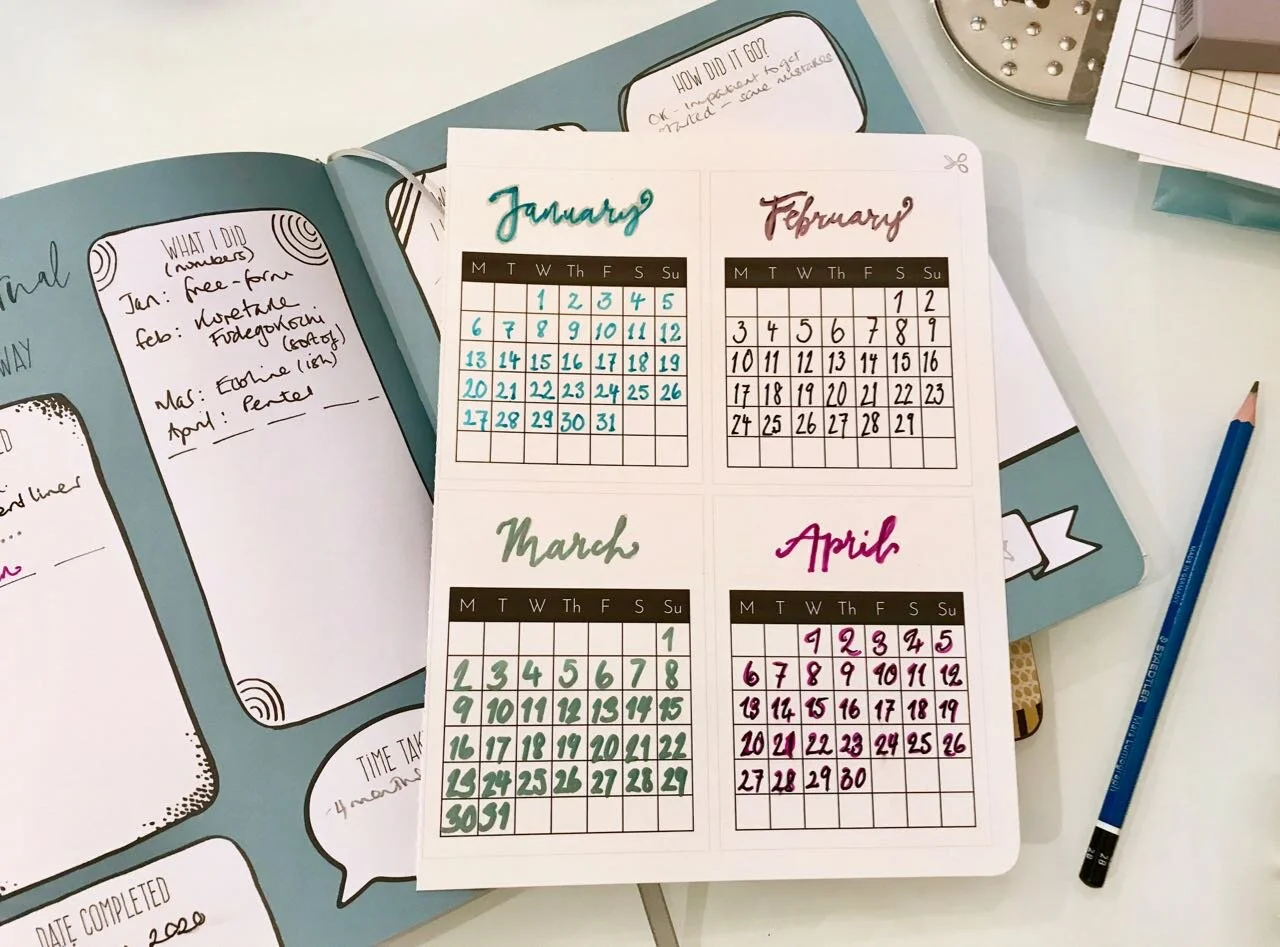 WAY
WHAT I DID
(numbers)
Jan: free-form
Feb: Kuretake
Fudegokochi
(sort of)
Mar: Ecoline (ish)
April: Pentel
TIME
4 months
DATE COMPLETED
2020
HOW DID IT GO?
OK - impatient to get
started - some mistakes
January
M T W Th F S Su
1 2 3 4 5
6 7 8 9 10 11 12
13 14 15 16 17 18 19
20 21 22 23 24 25 26
27 28 29 30 31
February
M T W Th F S Su
1 2
3 4 5 6 7 8 9
10 11 12 13 14 15 16
17 18 19 20 21 22 23
24 25 26 27 28 29
March
M T W Th F S Su
1
2 3 4 5 6 7 8
9 10 11 12 13 14 15
16 17 18 19 20 21 22
23 24 25 26 27 28 29
30 31
April
M T W Th F S Su
1 2 3 4 5
6 7 8 9 10 11 12
13 14 15 16 17 18 19
20 21 22 23 24 25 26
27 28 29 30
MADE IN GERMANY
STAEDTLER
Mars Lumograph
2B
2B